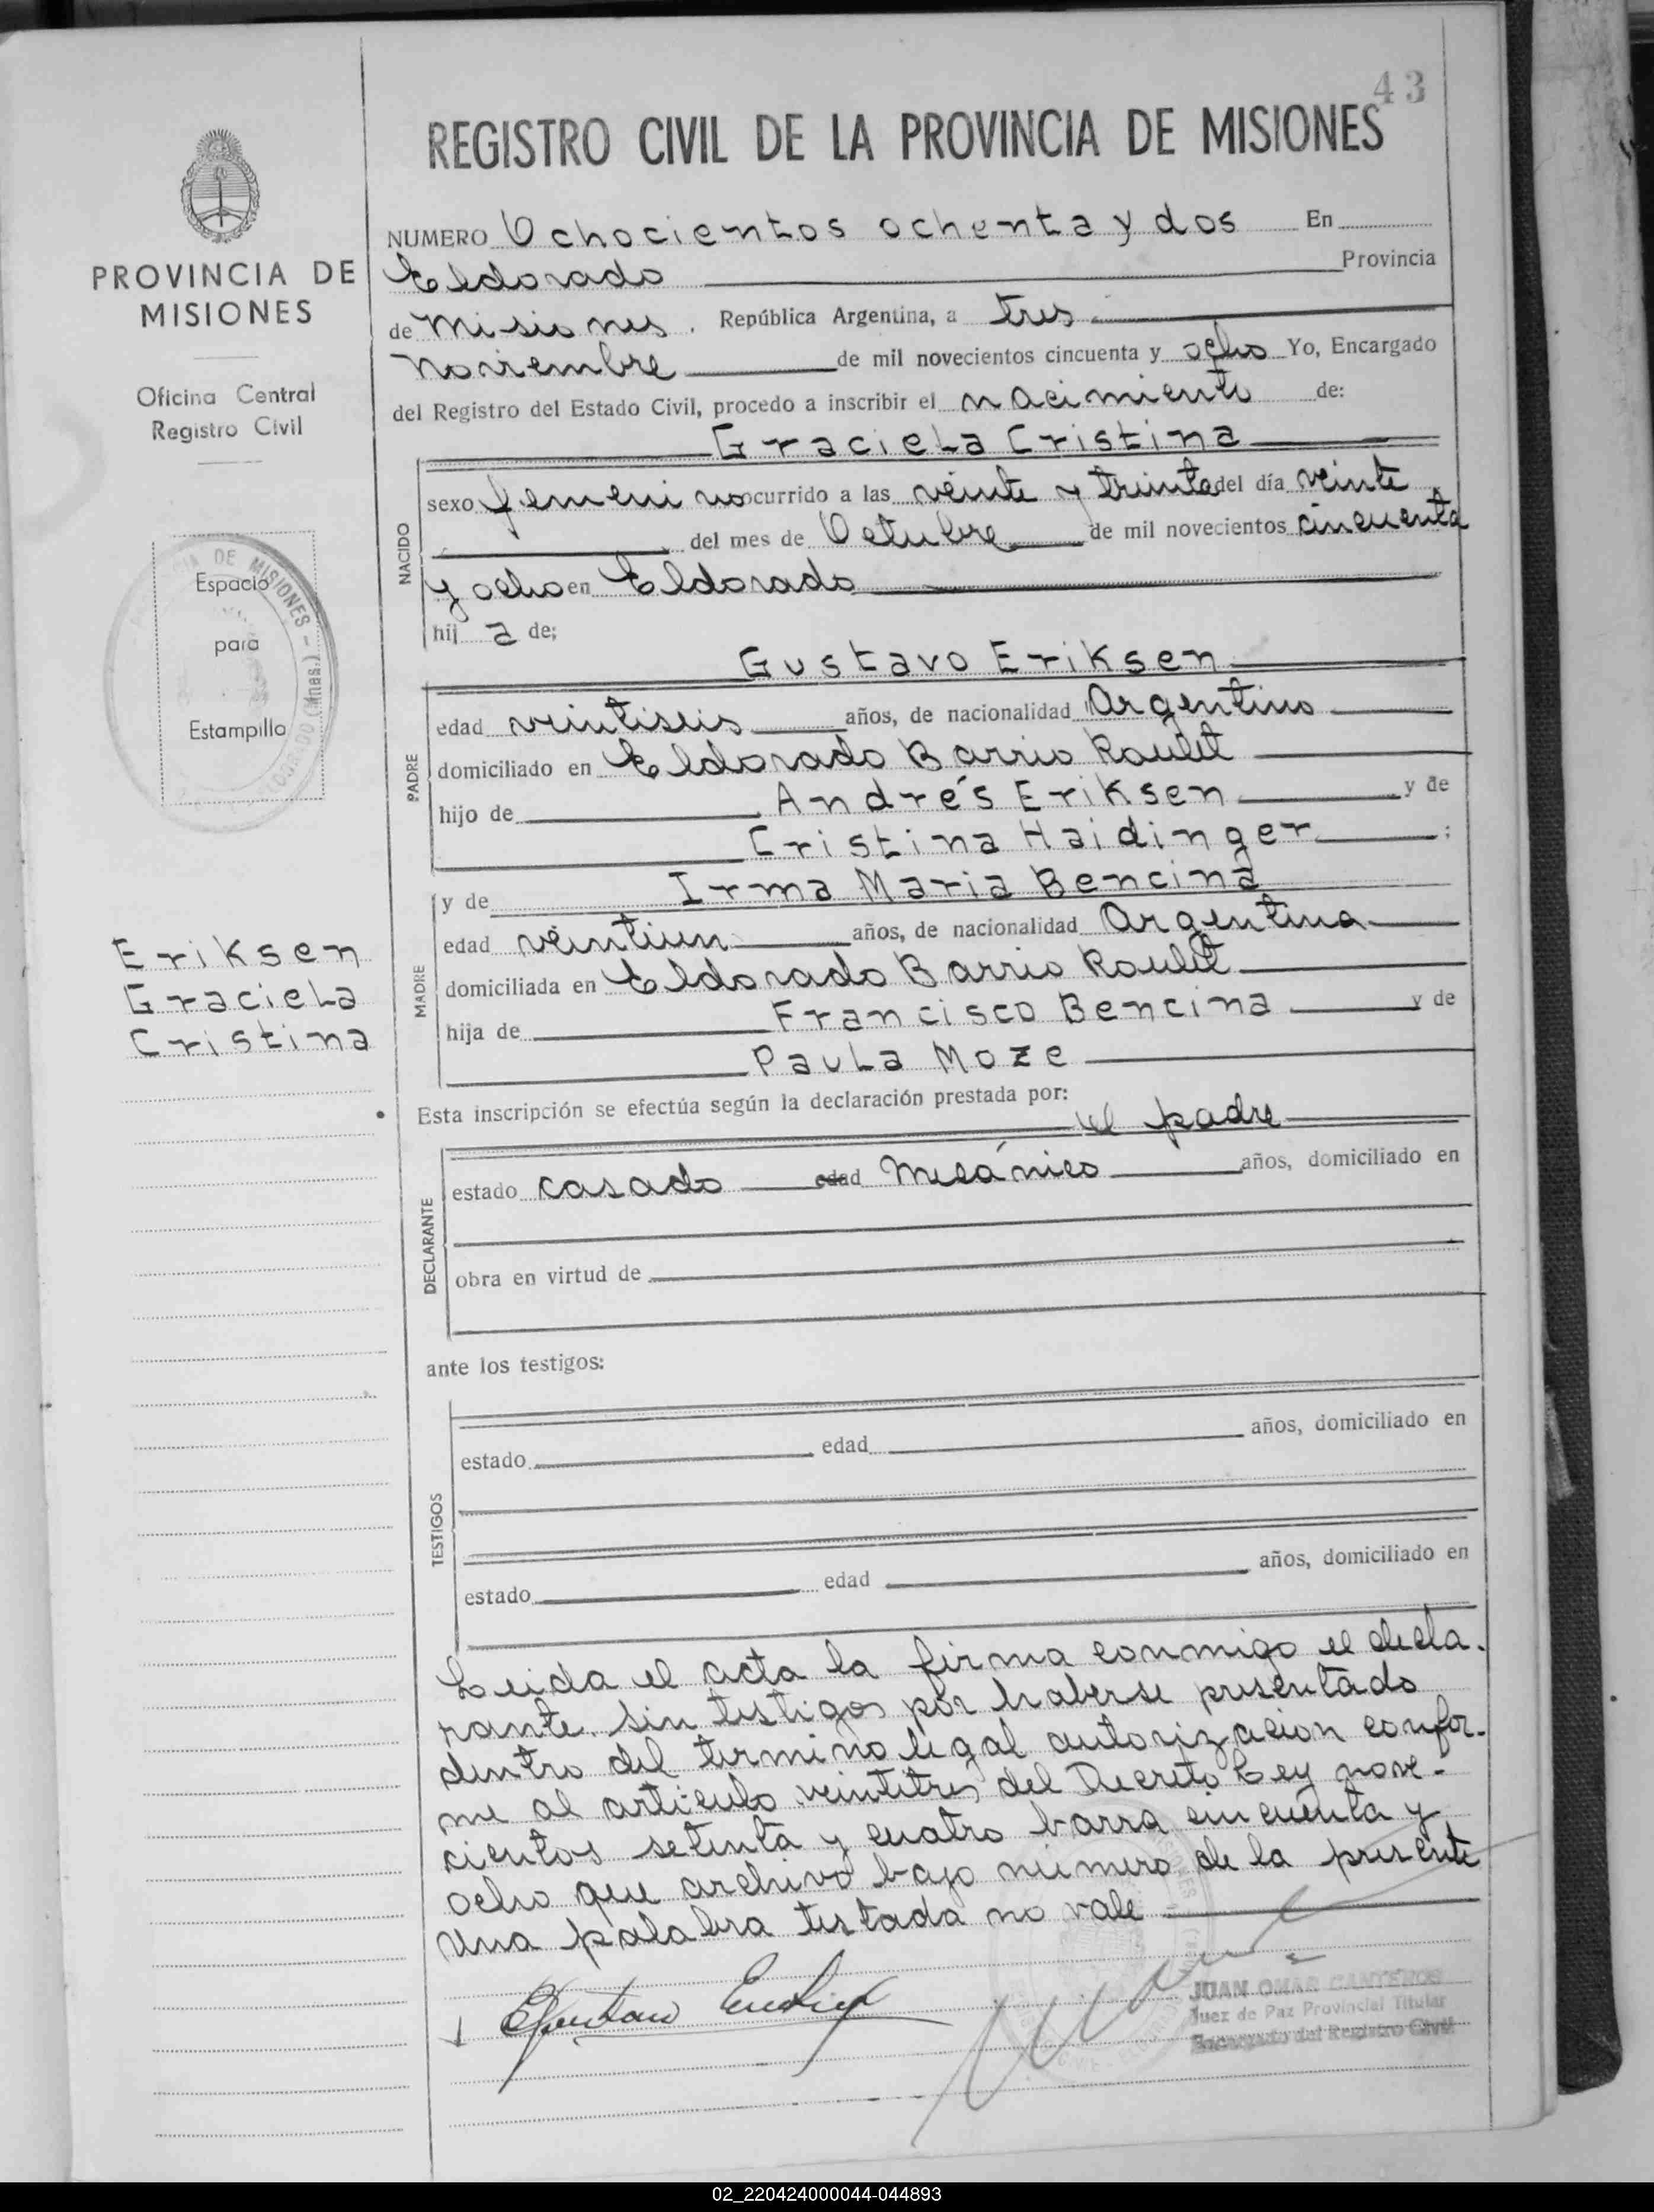 43
REGISTRO CIVIL DE LA PROVINCIA DE MISIONES
PROVINCIA DE
MISIONES
Oficina Central
Registro Civil
Espacio
para
Estampilla
DE MISIONES - (Mnes.)
Eriksen
Graciela
Cristina
NUMERO Ochocientos ochenta y dos En
Eldorado Provincia
de Misiones. República Argentina, a tres
Noviembre de mil novecientos cincuenta y ocho Yo, Encargado
del Registro del Estado Civil, procedo a inscribir el nacimiento de:
Graciela Cristina
NACIDO
sexo femenino ocurrido a las veinte y treinta del día veinte
del mes de Octubre de mil novecientos cincuenta
y ocho en Eldorado
hij a de;
Gustavo Eriksen
PADRE
edad veintiseis años, de nacionalidad Argentino
domiciliado en Eldorado Barrio Roulet
hijo de Andrés Eriksen y de
Cristina Haidinger ;
MADRE
y de Irma Maria Bencina
edad veintiun años, de nacionalidad Argentina
domiciliada en Eldorado Barrio Roulet
hija de Francisco Bencina y de
Paula Moze
Esta inscripción se efectúa según la declaración prestada por:
el padre
DECLARANTE
estado casado edad Mecánico años, domiciliado en
obra en virtud de
ante los testigos:
TESTIGOS
estado edad años, domiciliado en
estado edad años, domiciliado en
Leida el acta la firma conmigo el decla-
rante sin testigos por haberse presentado
dentro del termino legal autorizacion confor-
me al articulo veintitres del Decreto Ley nove-
cientos setenta y cuatro barra cincuenta y
ocho que archivo bajo número de la presente
Una palabra testada no vale
JUAN OMAR CANTEROS
Juez de Paz Provincial Titular
Encargado del Registro Civil
02_220424000044-044893